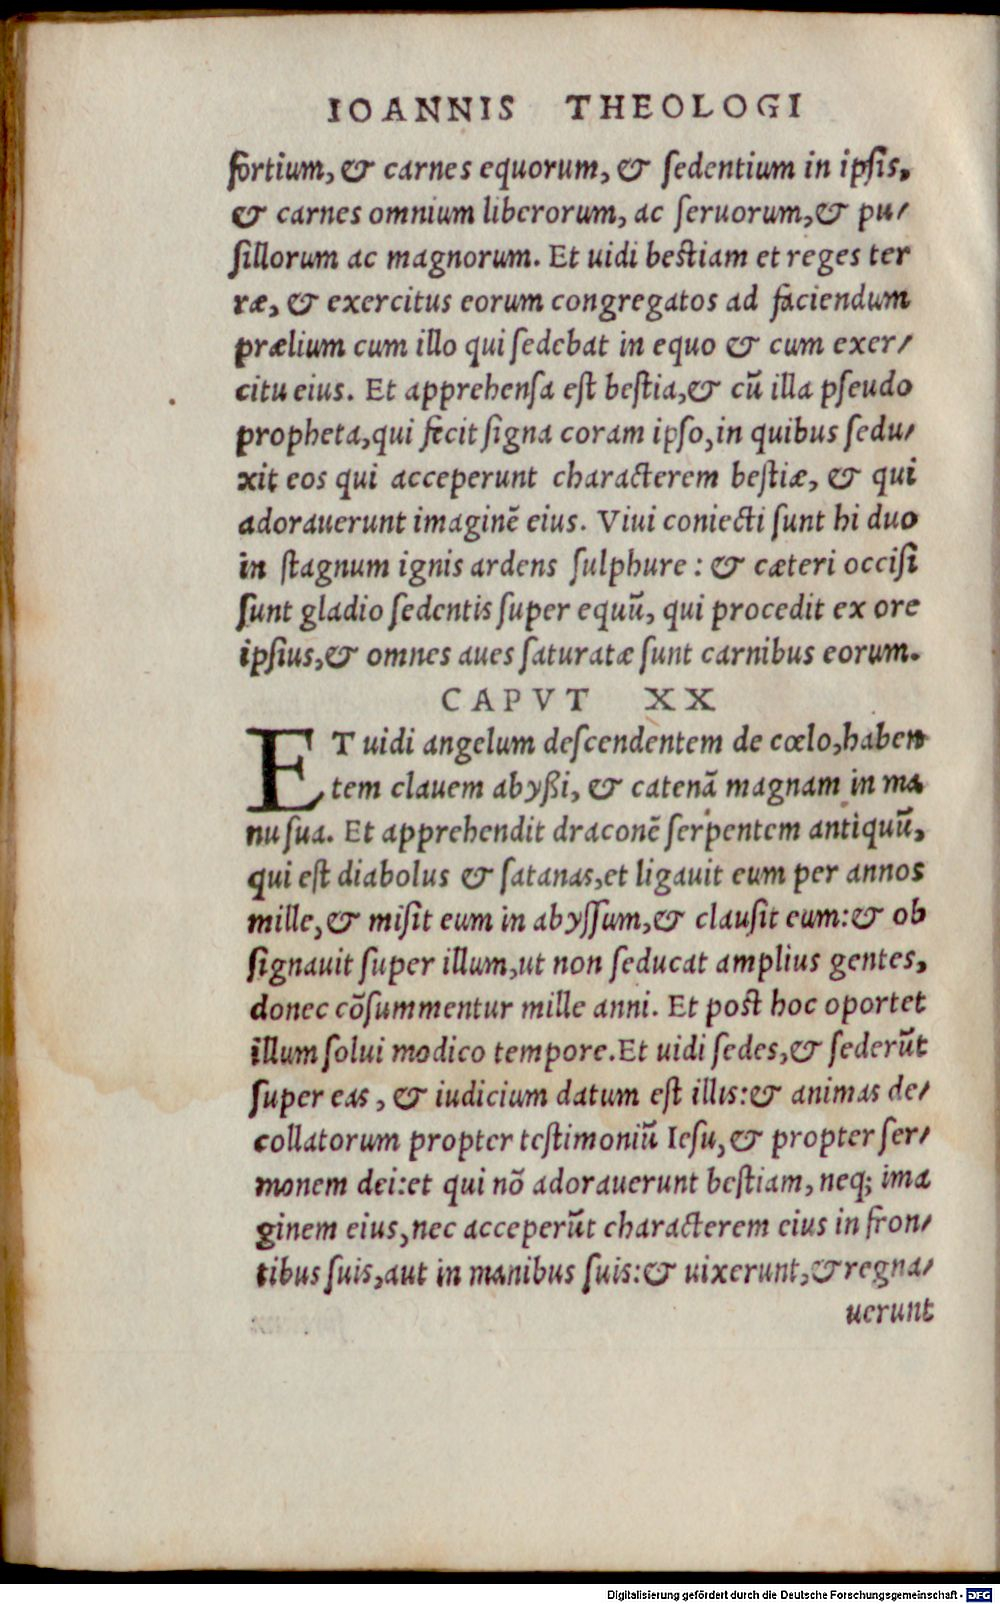 IOANNIS THEOLOGI
fortium, & carnes equorum, & ſedentium in ipſis,
& carnes omnium liberorum, ac ſeruorum,& pu/
ſillorum ac magnorum. Et uidi beſtiam et reges ter
ræ, & exercitus eorum congregatos ad faciendum
prælium cum illo qui ſedebat in equo & cum exer/
citu eius. Et apprehenſa eſt beſtia,& cū illa pſeudo
propheta,qui fecit ſigna coram ipſo,in quibus ſedu/
xit eos qui acceperunt characterem beſtiæ, & qui
adorauerunt imaginē eius. Viui coniecti ſunt hi duo
in ſtagnum ignis ardens ſulphure : & cæteri occiſi
ſunt gladio ſedentis ſuper equū, qui procedit ex ore
ipſius,& omnes aues ſaturatæ ſunt carnibus eorum.
CAPVT XX
ET uidi angelum deſcendentem de cœlo,haben
tem clauem abyßi, & catenā magnam in ma
nu ſua. Et apprehendit draconē ſerpentem antiquū,
qui eſt diabolus & ſatanas,et ligauit eum per annos
mille,& miſit eum in abyſſum,& clauſit eum:& ob
ſignauit ſuper illum,ut non ſeducat amplius gentes,
donec cōſummentur mille anni. Et poſt hoc oportet
illum ſolui modico tempore.Et uidi ſedes,& ſederūt
ſuper eas , & iudicium datum eſt illis:& animas de/
collatorum propter teſtimoniū Ieſu,& propter ſer/
monem dei:et qui nō adorauerunt beſtiam, neq; ima
ginem eius,nec acceperūt characterem eius in fron/
tibus ſuis,aut in manibus ſuis:& uixerunt,& regna/
uerunt
Digitalisierung gefördert durch die Deutsche Forschungsgemeinschaft - DFG